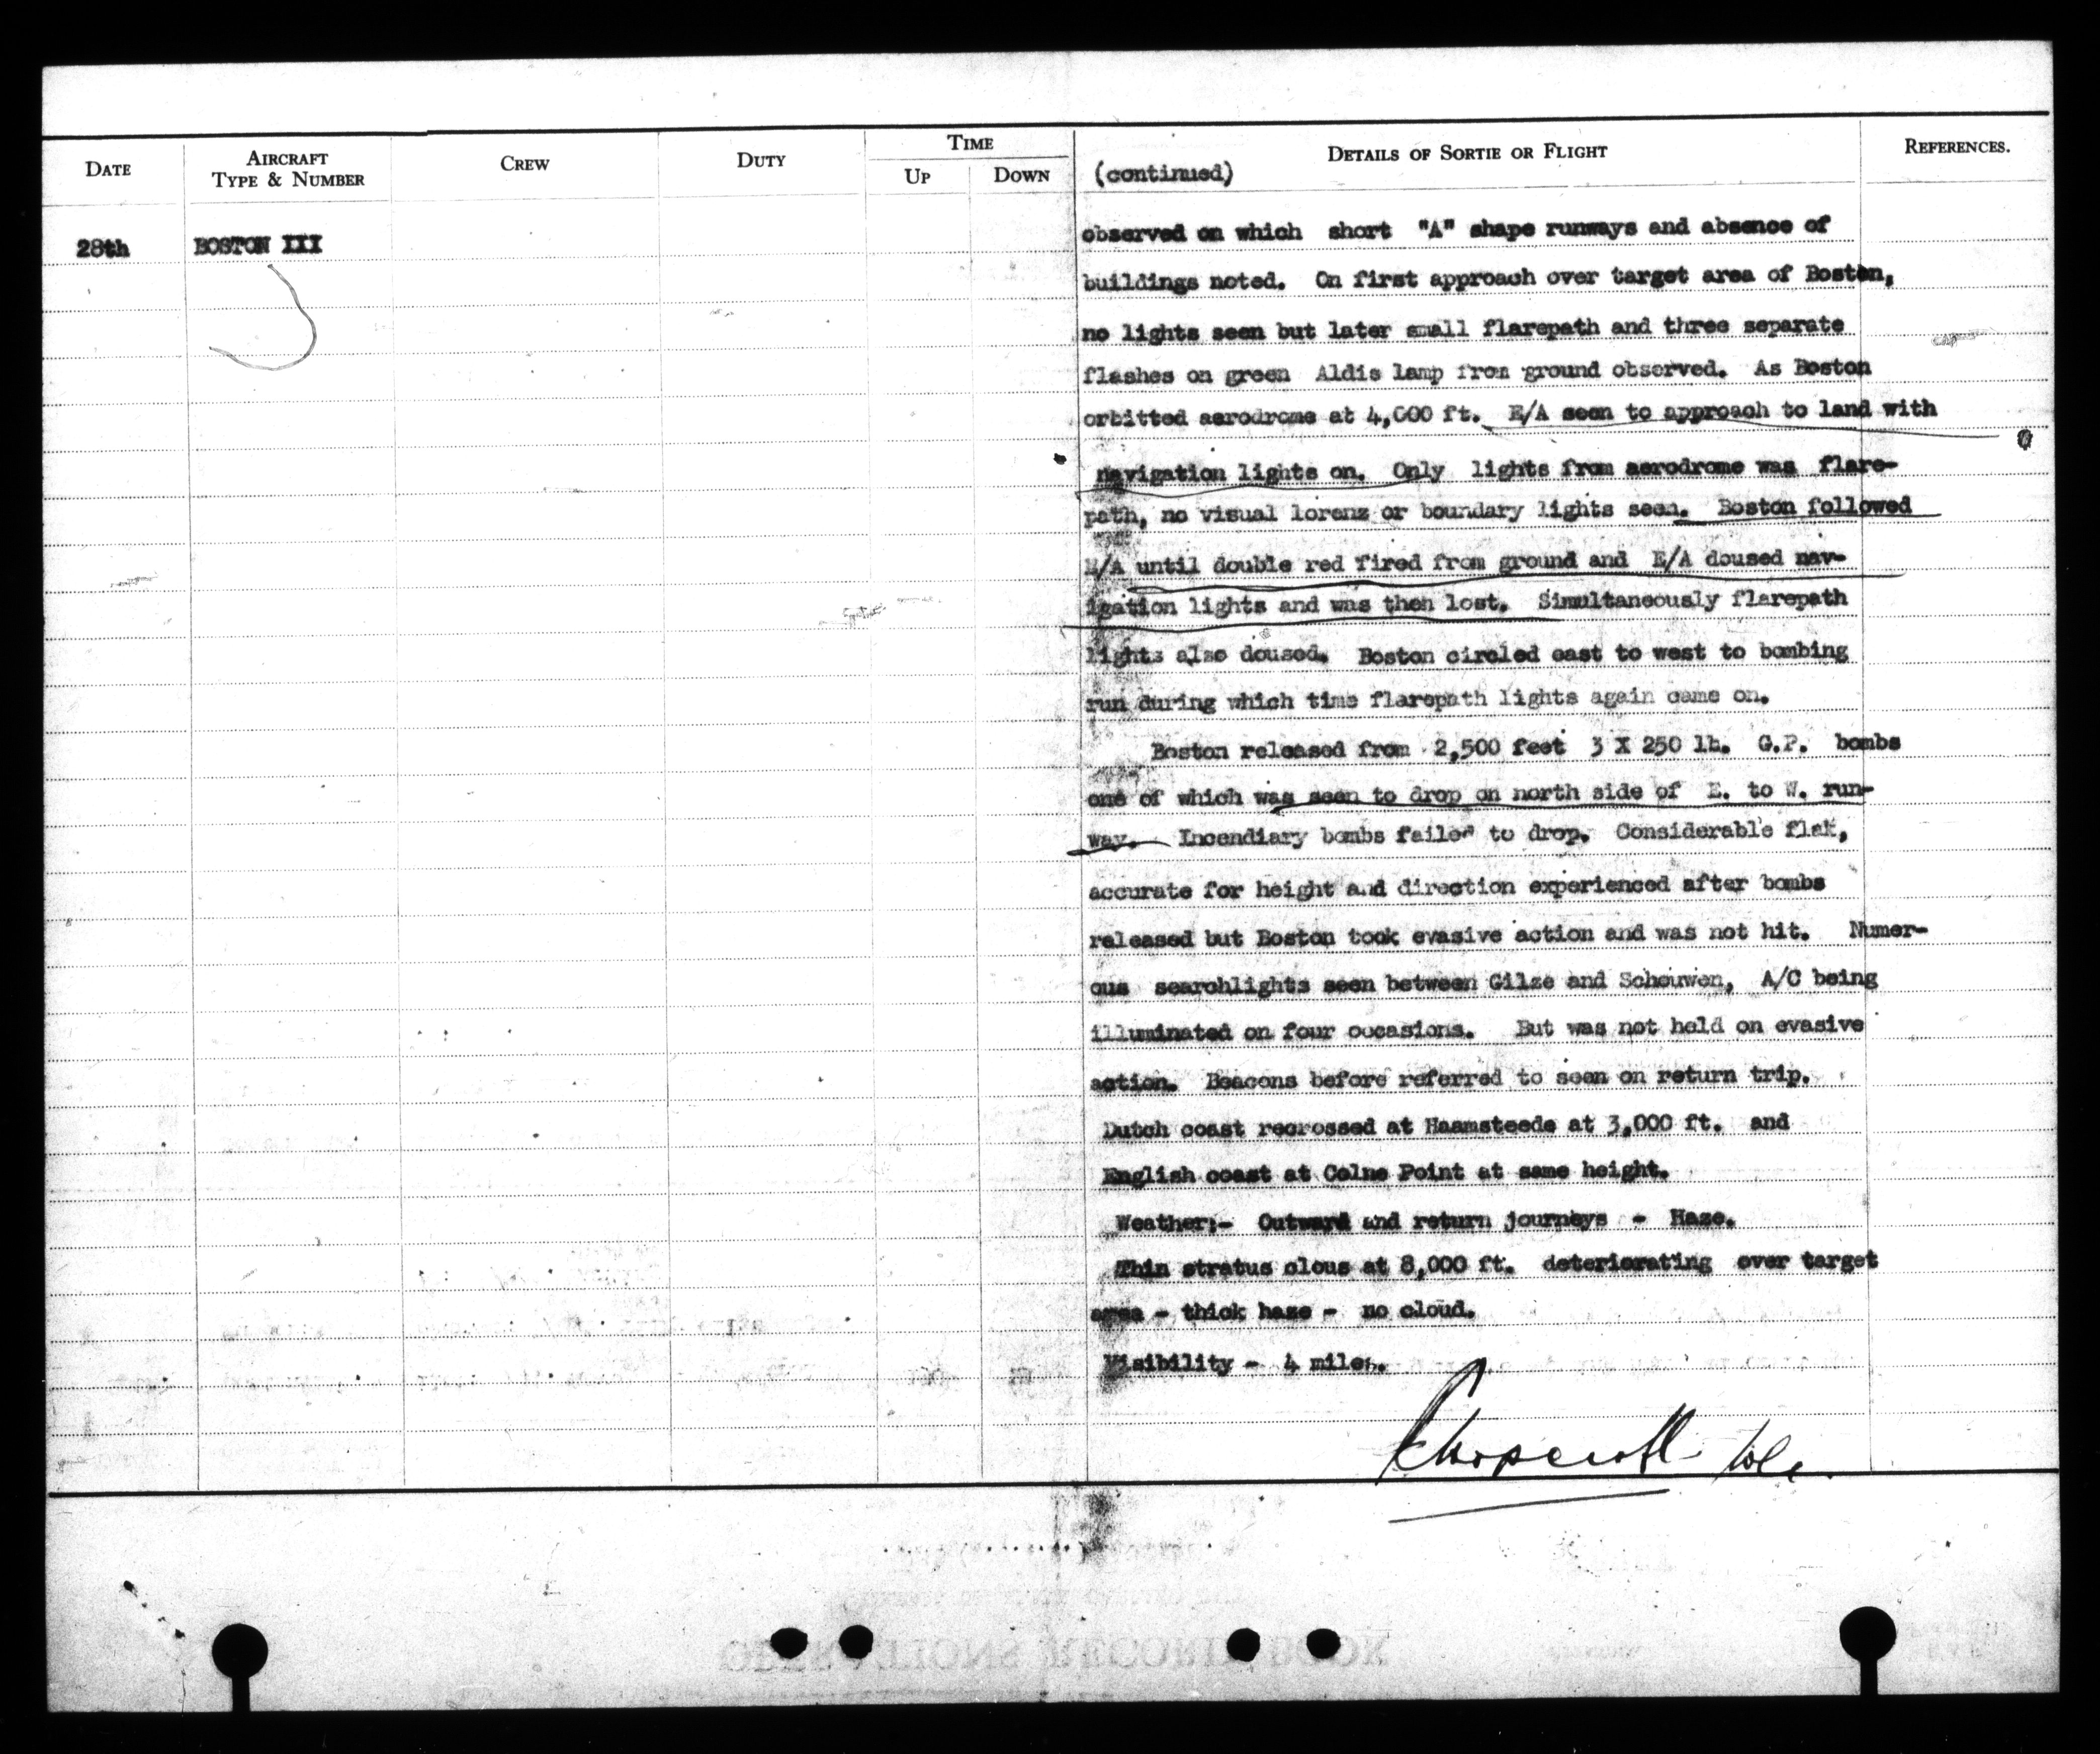 DATE
AIRCRAFT
TYPE & NUMBER
CREW
DUTY
TIME
UP
DOWN
DETAILS OF SORTIE OR FLIGHT
REFERENCES.
(continued)
28th BOSTON III
observed on which short "A" shape runways and absence of
buildings noted. On first approach over target area of Boston,
no lights seen but later small flarepath and three separate
flashes on green Aldis lamp from ground observed. As Boston
orbitted aerodrome at 4,000 ft. E/A seen to approach to land with
navigation lights on. Only lights from aerodrome was flare-
path, no visual lorenz or boundary lights seen. Boston followed
E/A until double red fired from ground and E/A doused nav-
igation lights and was then lost. Simultaneously flarepath
lights also doused. Boston circled east to west to bombing
run during which time flarepath lights again came on.
Boston released from 2,500 feet 3 X 250 lb. G.P. bombs
one of which was seen to drop on north side of E. to W. run-
way. Incendiary bombs failed to drop. Considerable flak,
accurate for height and direction experienced after bombs
released but Boston took evasive action and was not hit. Numer-
ous searchlights seen between Gilze and Schouwen, A/C being
illuminated on four occasions. But was not held on evasive
action. Beacons before referred to seen on return trip.
Dutch coast recrossed at Haamsteede at 3,000 ft. and
English coast at Colne Point at same height.
Weather:- Outward and return journeys - Haze.
Thin stratus clous at 8,000 ft. deteriorating over target
area - thick haze - no cloud.
Visibility - 4 miles.